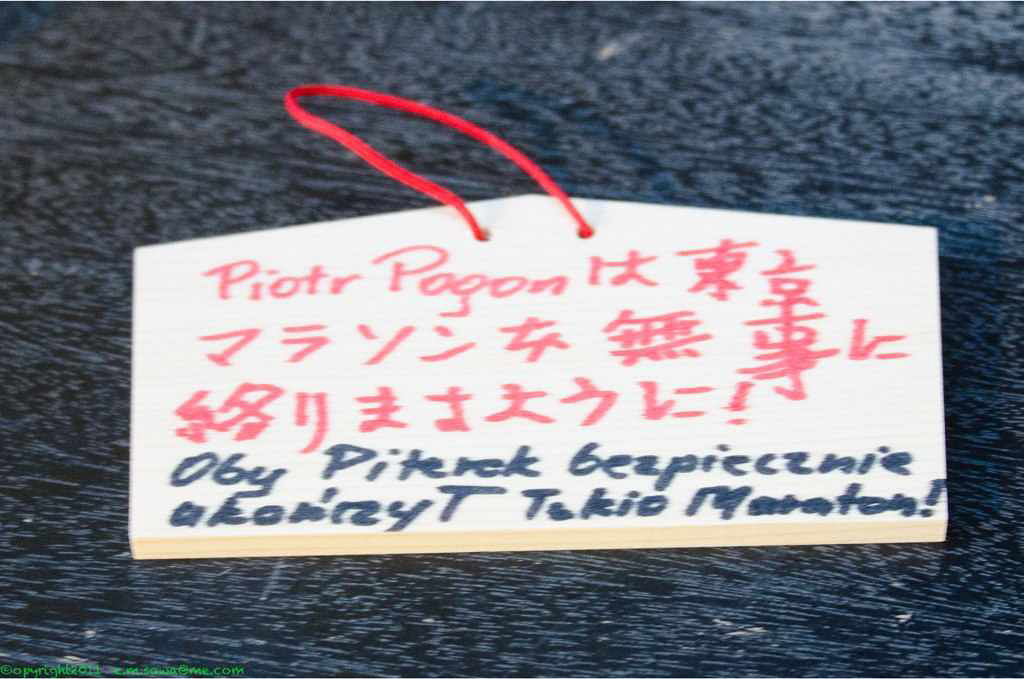 Piotr Pogon は東京
マラソンを無事に
終りますように!
Oby Piterek bezpiecznie
ukończył Tokio Maraton!
©opyright2011 e.m.sowa@me.com